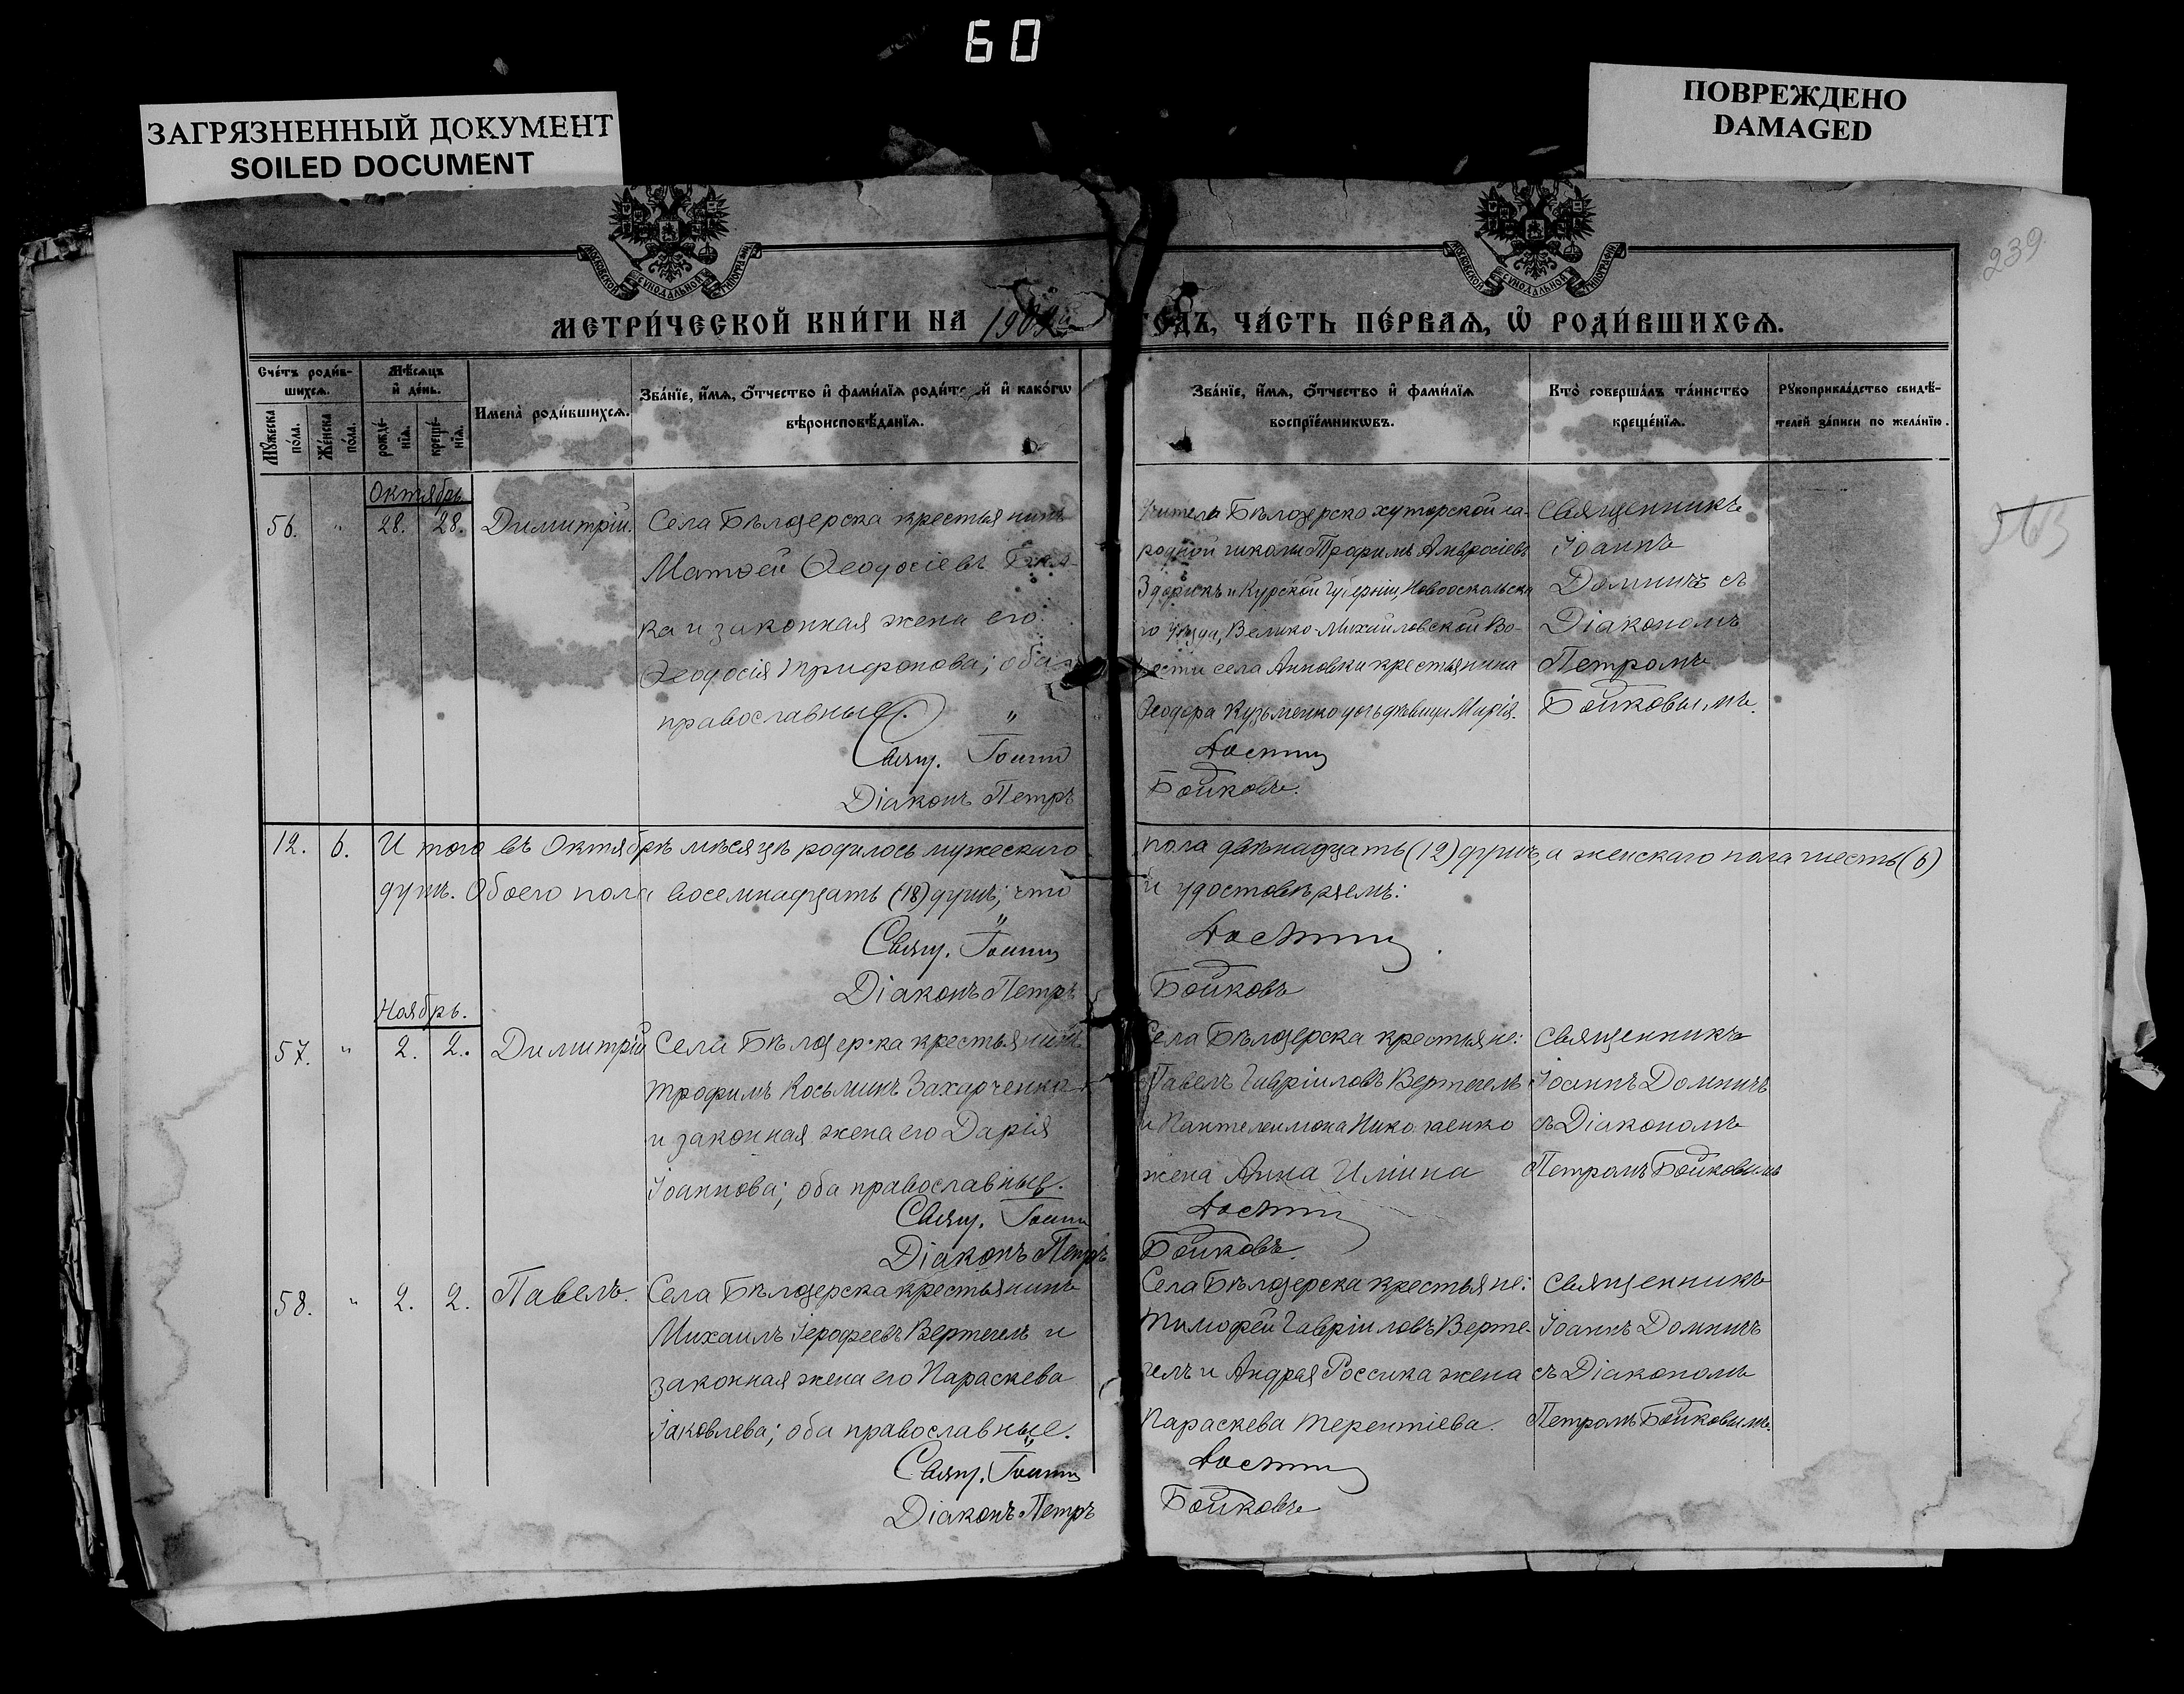 60
ЗАГРЯЗНЕННЫЙ ДОКУМЕНТ
SOILED DOCUMENT
ПОВРЕЖДЕНО
DAMAGED
239
МОСКОВСКОЙ СѴНОДАЛЬНОЙ ТИПОГРАФІИ
МОСКОВСКОЙ СѴНОДАЛЬНОЙ ТИПОГРАФІИ
МЕТРИ́ЧЕСКОЙ КНИ́ГИ НА 190
ГОДЪ, ЧА́СТЬ ПЕ́РВАѦ, Ѡ҆ РОДИ́ВШИХСѦ.
Сче́тъ роди́в-
шихсѧ.
Мꙋжеска по́ла.
Же́нска по́ла.
Мѣ́сѧцъ
и҆ де́нь.
рожде́-
нїѧ.
креще́-
нїѧ.
И҆мена̀ роди́вшихсѧ.
Зва́нїе, и҆́мѧ, ѻ҆́тчество и҆ фами́лїѧ роди́т й и҆ како́гѡ
вѣроисповѣ́данїѧ.
Зва́нїе, и҆́мѧ, ѻ҆́тчество и҆ фами́лїѧ
воспрїе́мникѡвъ.
Кто̀ соверша́лъ та́инство
креще́нїѧ.
Рꙋкоприкла́дство свидѣ́-
телей за́писи по жела́нїю.
Октябрь
56. " 28. 28. Димитрій.
Села Бѣлозерска крестьянинъ
Матѳей Ѳеодосіевъ
ка и законная жена его
Ѳеодосія Трифонова; оба
православные.
Свящ. Іоаннъ
Діаконъ Петръ
Учитель Бѣлозерско хуторской на-
родной школы Трофимъ Амвросіевъ
и Курской губерніи, Новооскольска
го уѣзда, Велико-Михайловской Во-
лости села Анновки крестьянина
Ѳеодора Кузьменко дочь дѣвица Марія.
Бойковъ.
Священникъ
Іоаннъ
Домничъ съ
Діакономъ
Петромъ
Бойковымъ.
12. 6. И того въ Октябрѣ мѣсяцѣ родилось мужескаго
пола двѣнадцать (12) душъ, а женскаго пола шесть (6)
душъ. Обоего пола восемнадцать (18) душъ; что
и удостовѣряемъ:
Свящ. Іоаннъ
Діаконъ Петръ
Бойковъ
Ноябрь.
57. " 2. 2. Димитрій
Села Бѣлозерска крестьянинъ
Трофимъ Косьминъ Захарченко
и законная жена его Дарія
Іоаннова; оба православные.
Свящ. Іоаннъ
Діаконъ Петръ
Села Бѣлозерска крестьяне:
Павелъ Гавріиловъ Вертегелъ
и Пантелеимона Николаенко
жена Анна Иліина
Бойковъ.
Священникъ
Іоаннъ Домничъ
съ Діакономъ
Петромъ Бойковымъ
58. " 2. 2. Павелъ.
Села Бѣлозерска крестьянинъ
Михаилъ Іерофеевъ Вертегелъ и
законная жена его Параскева
Іаковлева; оба православные.
Свящ. Іоаннъ
Діаконъ Петръ
Села Бѣлозерска крестьяне:
Тимофей Гавріиловъ Верте-
гелъ и Андрея Россика жена
Параскева Терентіева.
Бойковъ
Священникъ
Іоаннъ Домничъ
съ Діакономъ
Петромъ Бойковымъ.